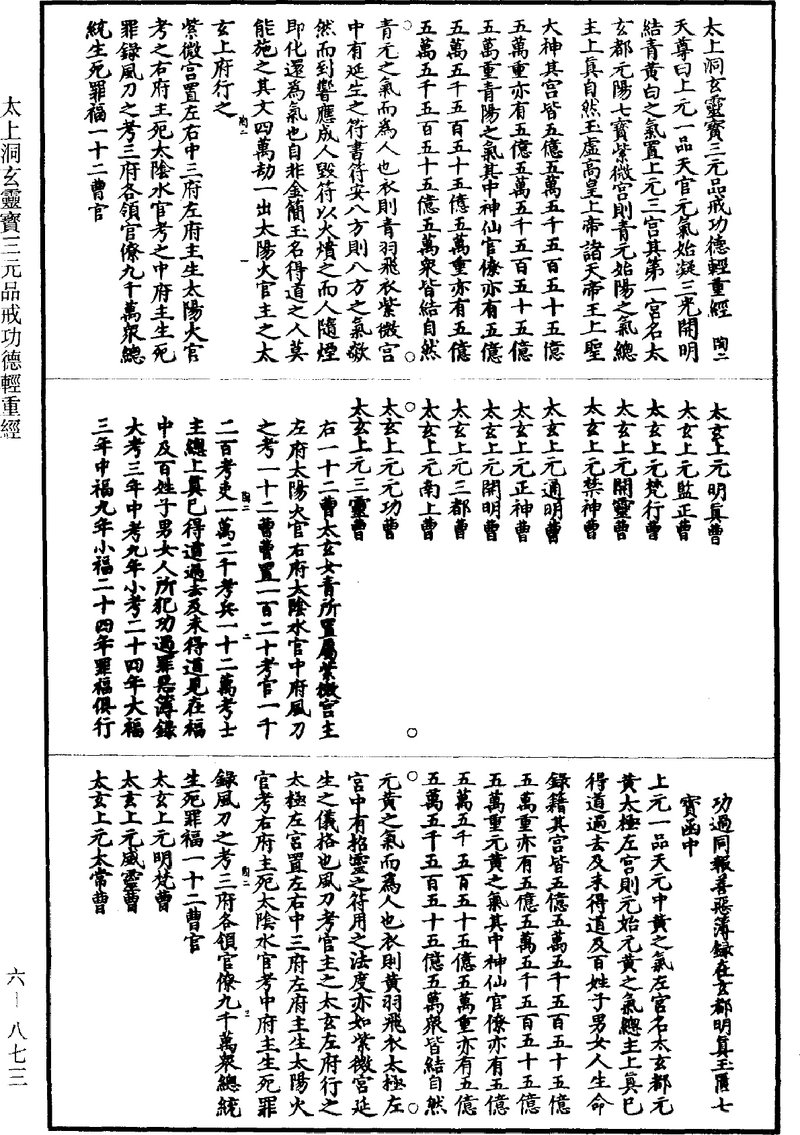 太上洞玄靈寶三元品戒功德輕重經 陶二
天尊曰上元一品天官元氣始凝三光開明
結青黃白之氣置上元三宮其第一宮名太
玄都元陽七寶紫微宮則青元始陽之氣總
主上真自然玉虛高皇上帝諸天帝王上聖
大神其宮皆五億五萬五千五百五十五億
五萬重亦有五億五萬五千五百五十五億
五萬重青陽之氣其中神仙官僚亦有五億
五萬五千五百五十五億五萬重亦有五億
五萬五千五百五十五億五萬眾皆結自然
青元之氣而為人也衣則青羽飛衣紫微宮
中有延生之符書符安八方則八方之氣欻
然而到響應成人毀符以火燌之而人隨煙
即化還為氣也自非金簡玉名得道之人莫
能施之其文四萬劫一出太陽火官主之太
玄上府行之
紫微宮置左右中三府左府主生太陽火官
考之右府主死太陰水官考之中府主生死
罪錄風刀之考三府各領官僚九千萬眾總
統生死罪福一十二曹官
太玄上元明真曹
太玄上元監正曹
太玄上元梵行曹
太玄上元開靈曹
太玄上元禁神曹
太玄上元通明曹
太玄上元正神曹
太玄上元開明曹
太玄上元三都曹
太玄上元南上曹
太玄上元元功曹
太玄上元三靈曹
右一十二曹太玄女青所置屬紫微宮主
左府太陽火官右府太陰水官中府風刀
之考一十二曹曹置一百二十考官一千
二百考吏一萬二千考兵一十二萬考士
主總上真已得道過去及未得道見在福
中及百姓子男女人所犯功過罪惡簿錄
大考三年中考九年小考二十四年大福
三年中福九年小福二十四年罪福俱行
功過同報善惡簿錄在玄都明真玉匱七
寶函中
上元一品天元中黃之氣左宮名太玄都元
黃太極左宮則元始元黃之氣總主上真已
得道過去及未得道及百姓子男女人生命
錄籍其宮皆五億五萬五千五百五十五億
五萬重亦有五億五萬五千五百五十五億
五萬重元黃之氣其中神仙官僚亦有五億
五萬五千五百五十五億五萬重亦有五億
五萬五千五百五十五億五萬眾皆結自然
元黃之氣而為人也衣則黃羽飛衣太極左
宮中有招靈之符用之法度亦如紫微宮延
生之儀格也風刀考官主之太玄左府行之
太極左宮置左右中三府左府主生太陽火
官考右府主死太陰水官考中府主生死罪
錄風刀之考三府各領官僚九千萬眾總統
生死罪福一十二曹官
太玄上元明梵曹
太玄上元威靈曹
太玄上元太常曹
太上洞玄靈寶三元品戒功德輕重經
六－八七三